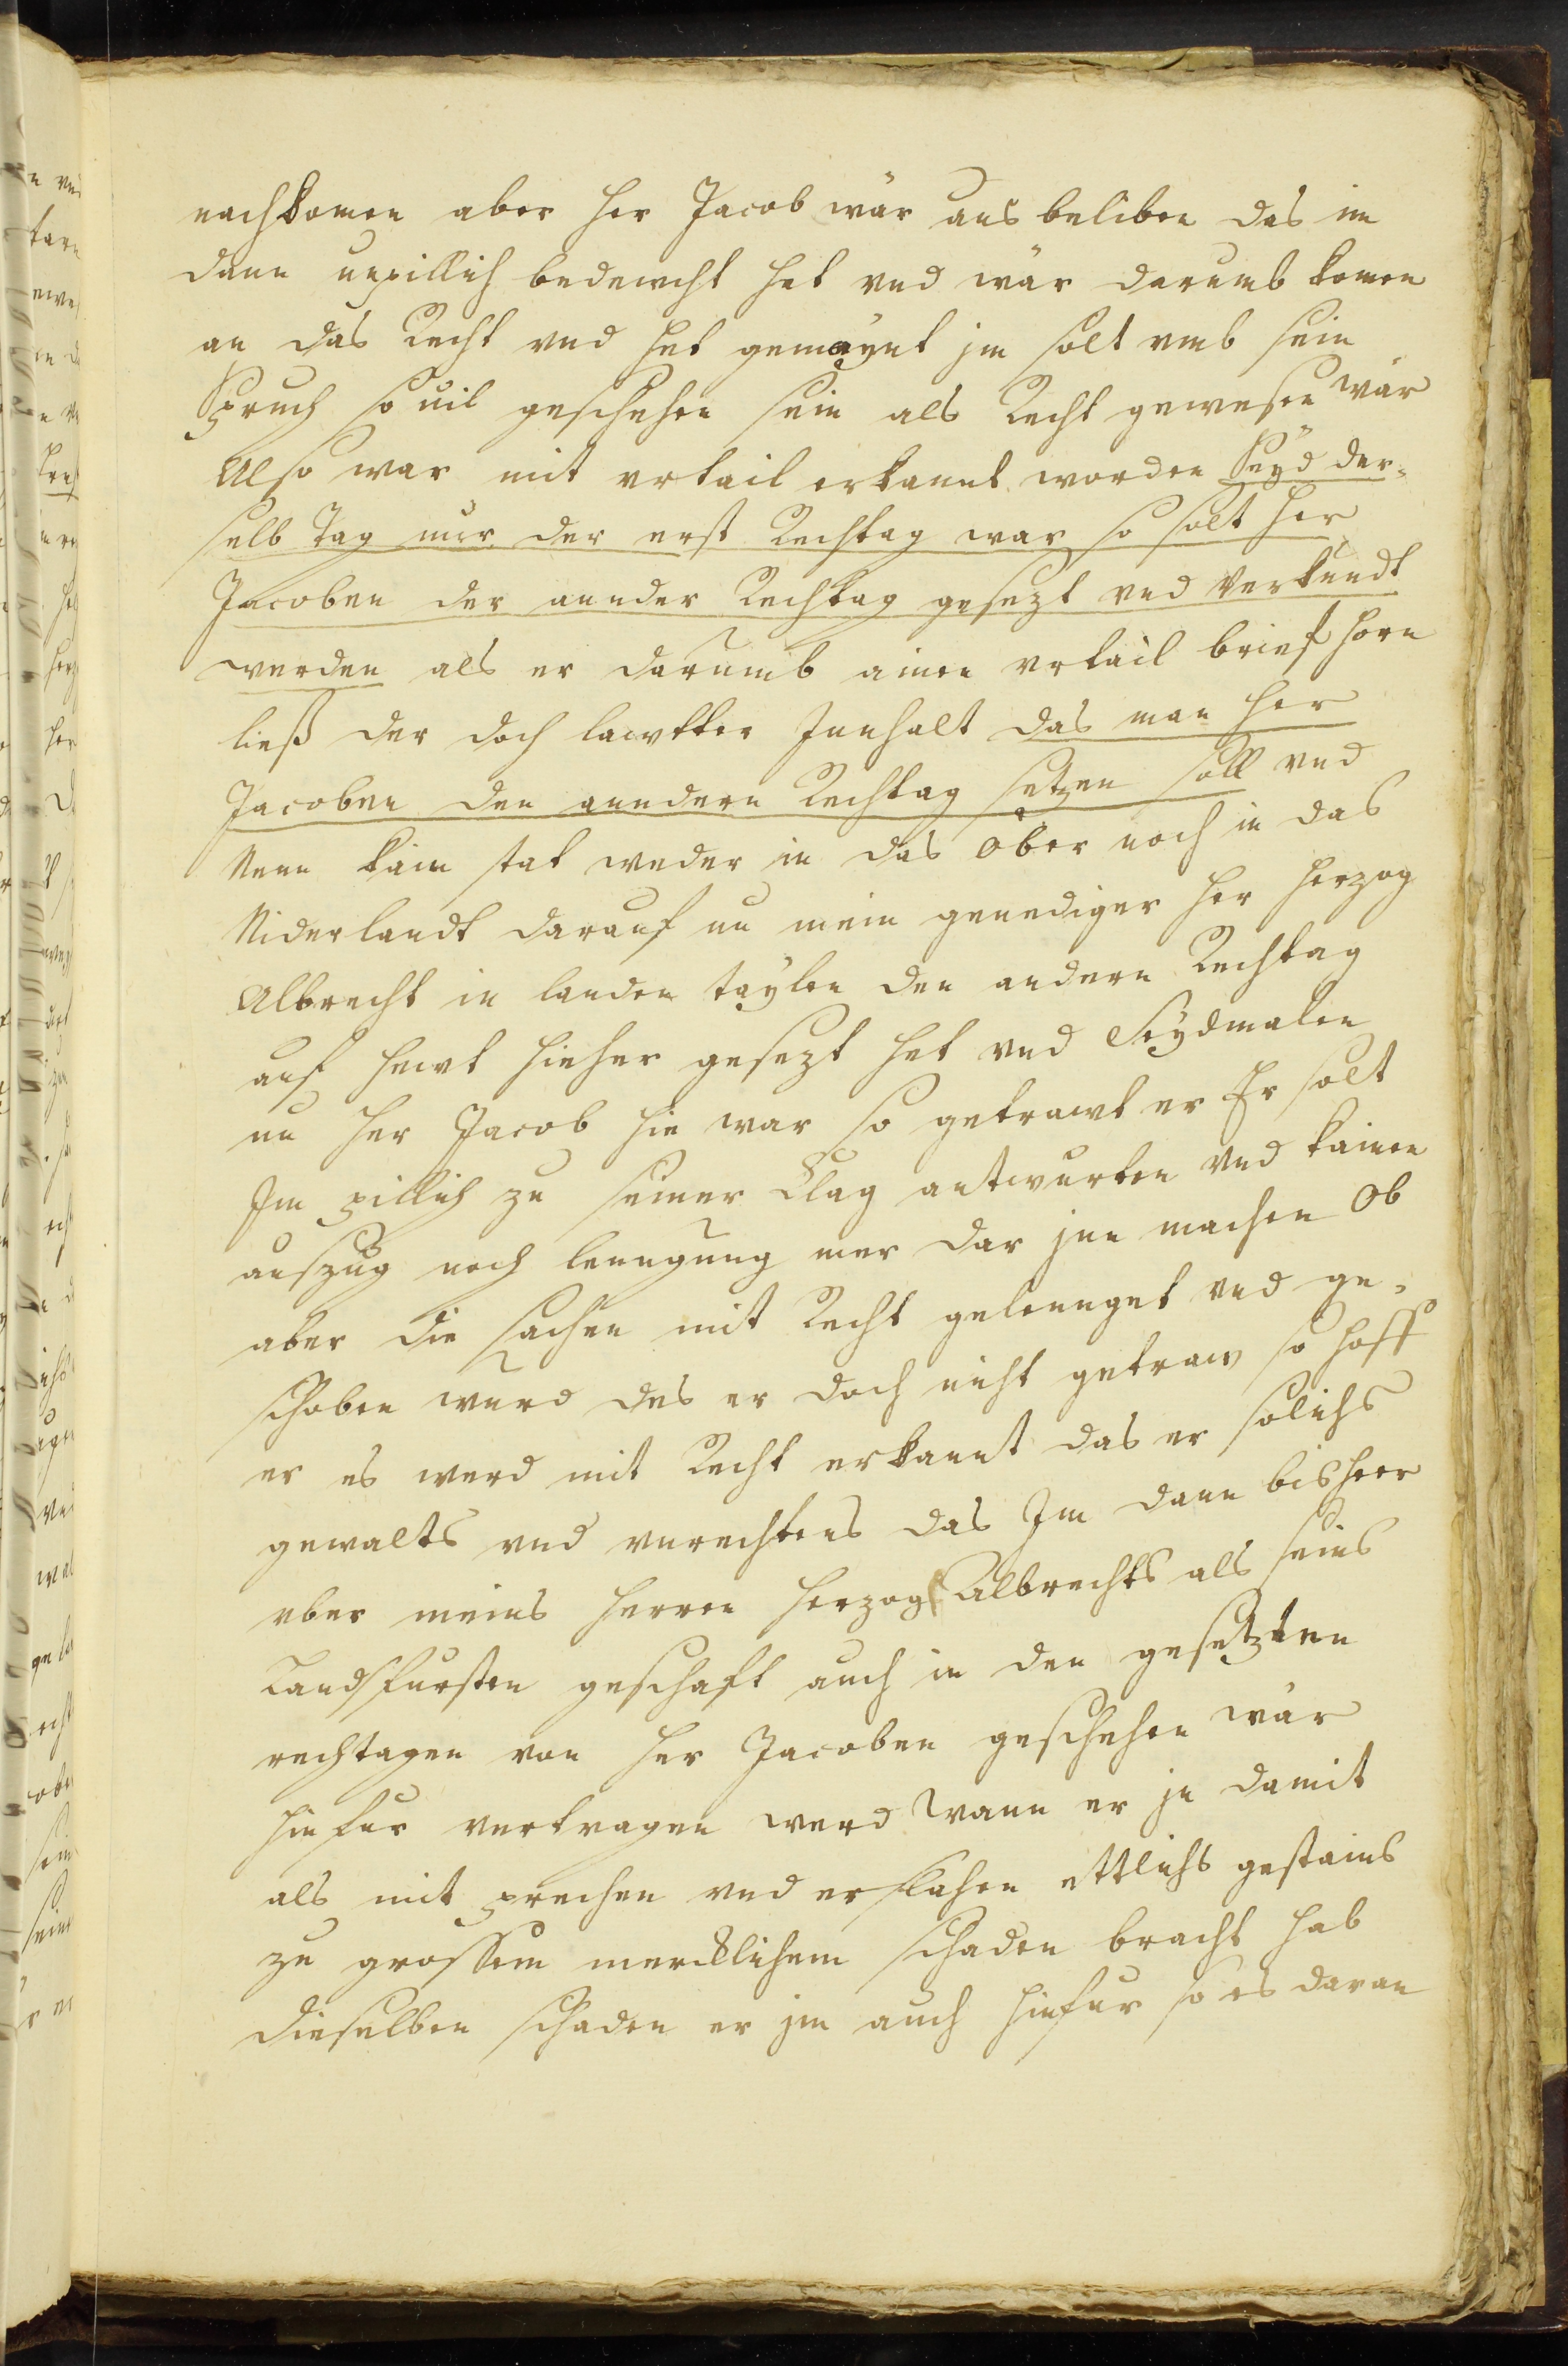 nachkomen aber her Jacob wär aus beliben das im
dann unpillich bedewcht het vnd wär darumb komen
an das Recht vnd het gemaynt jm solt vmb sein
Spruch souil geschehen sein als Recht gewesen wär
Also war mit vrtail erkannt worden Seyd der-
selb Tag nur der erst Rechtag war so solt her
Jacoben der annder Rechtag gesezt vnd verkundt
werden als er darumb ainen vrtail brief horn
ließ der doch lawtter Innhalt das man her
Jacoben den anndern Rechtag setzen soll vnd
Nenn kain stat weder in das ober noch in das
Niderlandt darauf nu mein genediger her herzog
Albrecht in landen taylen den andern Rechtag
auf hewt hieher gesezt het vnd Seydmalen
nu her Jacob hie war so getrawt er Er solt
Im pillich zu seiner Clag antwurten vnd kainen
auszug noch lenngung mer dar jnn machen Ob
aber die sachen mit Recht gelennget vnd ge-
schoben wurd des er doch nicht getraw so hoff
er es werd mit Recht erkannt das er solichs
gewalts vnd vnrechtens das Im dann bisheer
vber meins herren herzog Albrechts als seins
Landsfursten geschaft auch in den gesetzten
rechtagen von her Jacoben geschehen wär
hinfur vertragen werd wann er jn damit
als mit prechen vnd erslahen ettlichs gestains
zu grossem mercklichem schaden bracht hab
dieselben schaden er jm auch hinfur so es daran